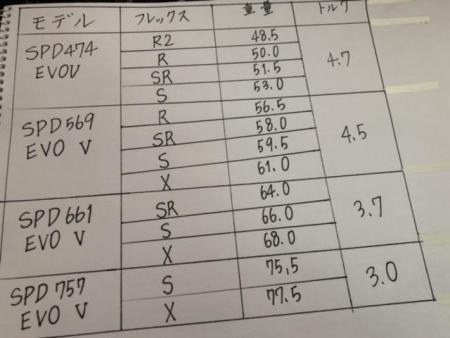 モデル フレックス 重量 トルク
SPD474 EVOV R2 48.5 4.7
R 50.0
SR 51.5
S 53.0
SPD569 EVO V R 56.5 4.5
SR 58.0
S 59.5
X 61.0
SPD661 EVO V SR 64.0 3.7
S 66.0
X 68.0
SPD757 EVO V S 75,5 3.0
X 77.5